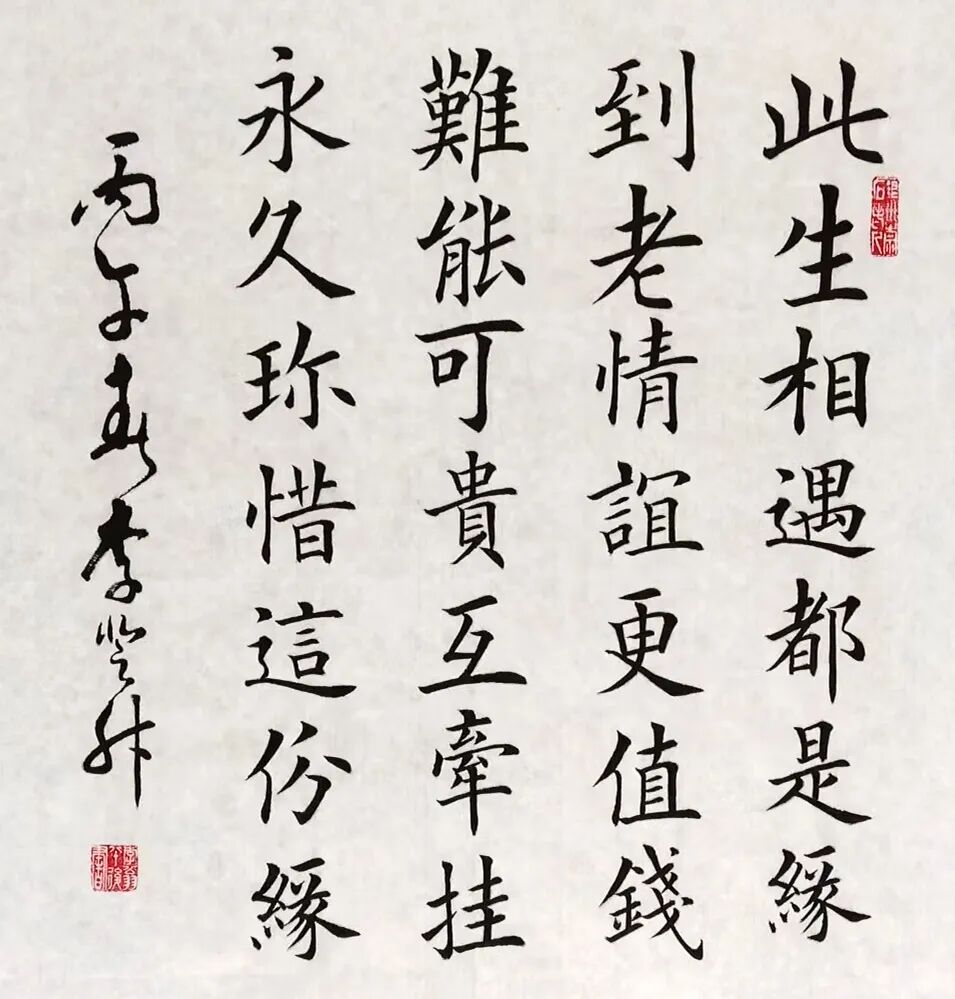 此生相遇都是緣
到老情誼更值錢
難能可貴互牽挂
永久珎惜這份緣
丙午春李登舟